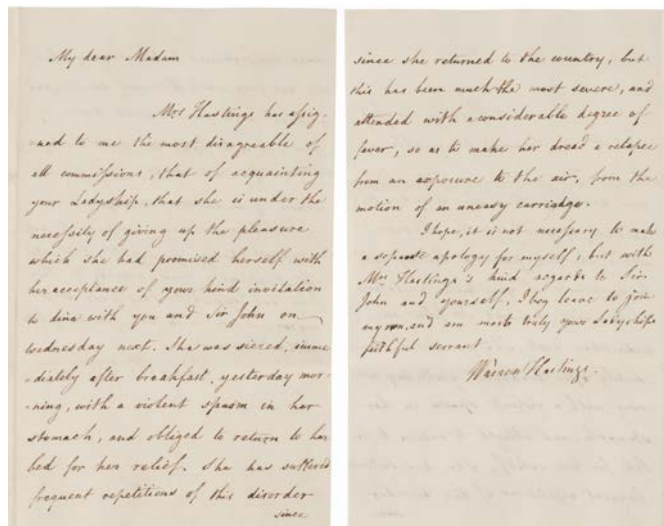 My dear Madam
Mrs Hastings has assig-
-ned to me the most disagreable of
all commissions, that of acquainting
your Ladyship, that she is under the
necessity of giving up the pleasure
which she had promised herself with
her acceptance of your kind invitation
to dine with you and Sir John on
wednesday next. She was siezed, imme
-diately after breakfast, yesterday mor-
-ning, with a violent spasm in her
stomach, and obliged to return to her
bed for her relief. She has suffered
frequent repetitions of this disorder
since
since she returned to the country, but
this has been much the most severe, and
attended with a considerable degree of
fever, so as to make her dread a relapse
from an exposure to the air, from the
motion of an uneasy carriadge.
I hope, it is not necessary to make
a separate apology for myself; but with
Mrs Hastings's kind regards to Sir
John and yourself, I beg leave to join
my own, and am most truly your Ladyship's
faithful servant
Warren Hastings.